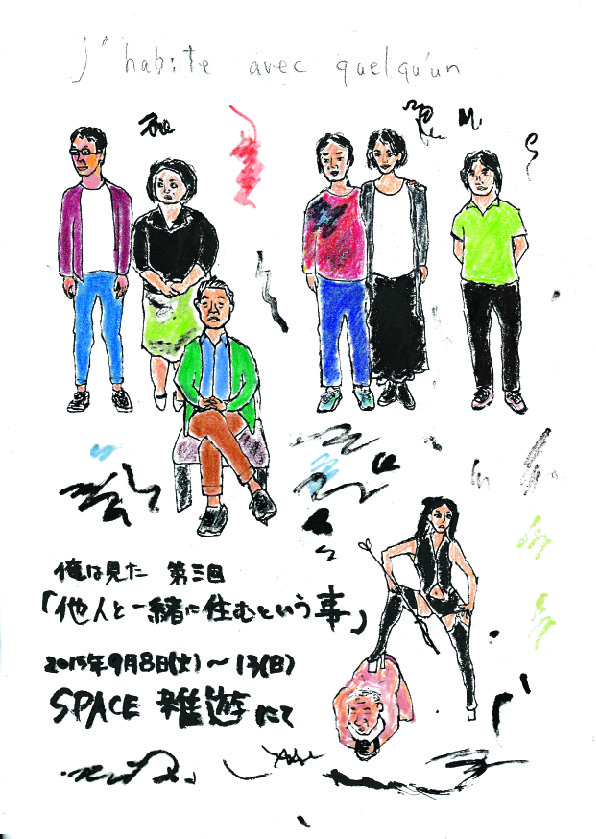 J'habite avec quelqu'un
俺は見た 第三回
「他人と一緒に住むという事」
2015年9月8日(火)〜13(日)
SPACE 雑遊にて